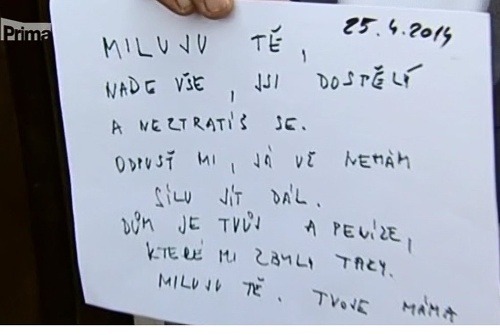 Prima
25.4.2014
MILUJU TĚ,
NADE VŠE, JSI DOSTĚLÝ
A NEZTRATÍŠ SE.
ODPUSŤ MI, JÁ UŽ NEMÁM
SÍLU JÍT DÁL.
DŮM JE TVŮJ A PENÍZE,
KTERÉ MI ZBYLI TADY.
MILUJU TĚ. TVOJE MÁMA